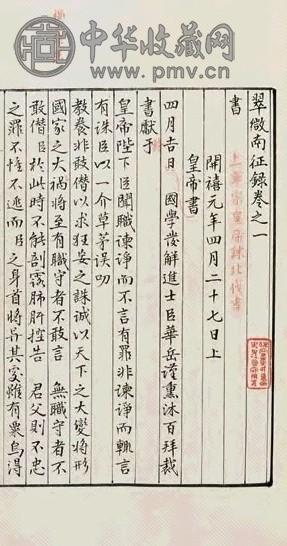 中华收藏网
www.pmv.cn
翠微南征録卷之一
書
上寧宗皇帝諫北伐書
開禧元年四月二十七日上
皇帝書
四月吉日 國學發解進士臣華岳謹熏沐百拜裁
書獻于
皇帝陛下臣聞職諫諍而不言有罪非諫諍而輒言
有誅臣以一介草茅誤叨
教養非敢僭以求狂妄之誅誠以天下之大變將形
國家之大禍將至有職守者不敢言 無職守者不
敢僭臣於此時不能剖露肺肝控告 君父則不忠
之罪不惟不逃而臣之身首將與其變雖有粟烏得